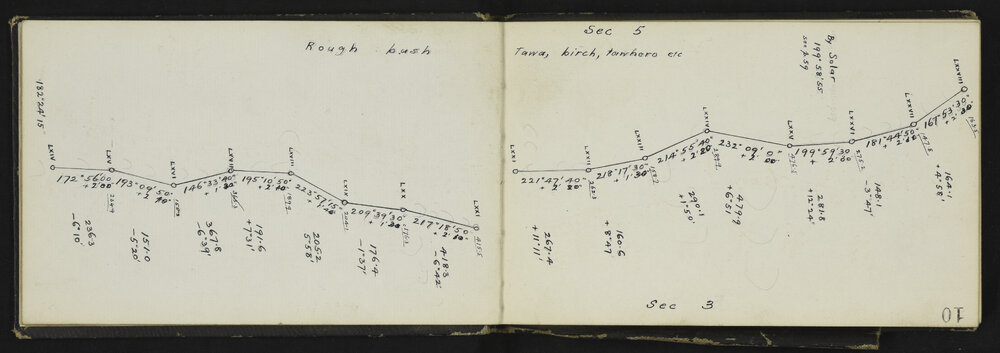 Sec 5
Rough bush
Tawa, birch, tawhero etc
By Solar
199° 58' 55
see p 59
182°24'15
LXIV
LXV
LXVI
LXVII
LXVIII
LXIX
LXX
LXXI
172°56'00
+ 2'00
193°09'50"
146°33'40"
195°10'50"
+ 2'10"
223°57'15"
209°39'30"
217°18'50"
+ 2'10
236.3
-6°10'
151.0
-5°20'
367.8
-6°39'
191.6
+7°31'
205.2
5°58'
176.4
-1°37'
418.3
-6°42'
LXXI
LXXII
LXXIII
LXXIV
LXXV
LXXVI
LXXVII
LXXVIII
221°47'40"
218°17'30"
+ 1'30"
214°55'40"
232°09'0"
199°59'30
+ 2'00
181°44'50"
167°53'30"
267.4
+11°11'
160.6
+8°47
290.1
+1°50'
479.9
+6°51'
281.8
+12°24'
148.1
-3°47'
164.1
+4°58'
Sec 3
10